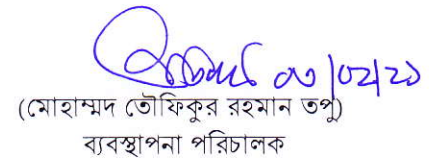 ০৩/০২/২১
(মোহাম্মদ তৌফিকুর রহমান তপু)
ব্যবস্থাপনা পরিচালক